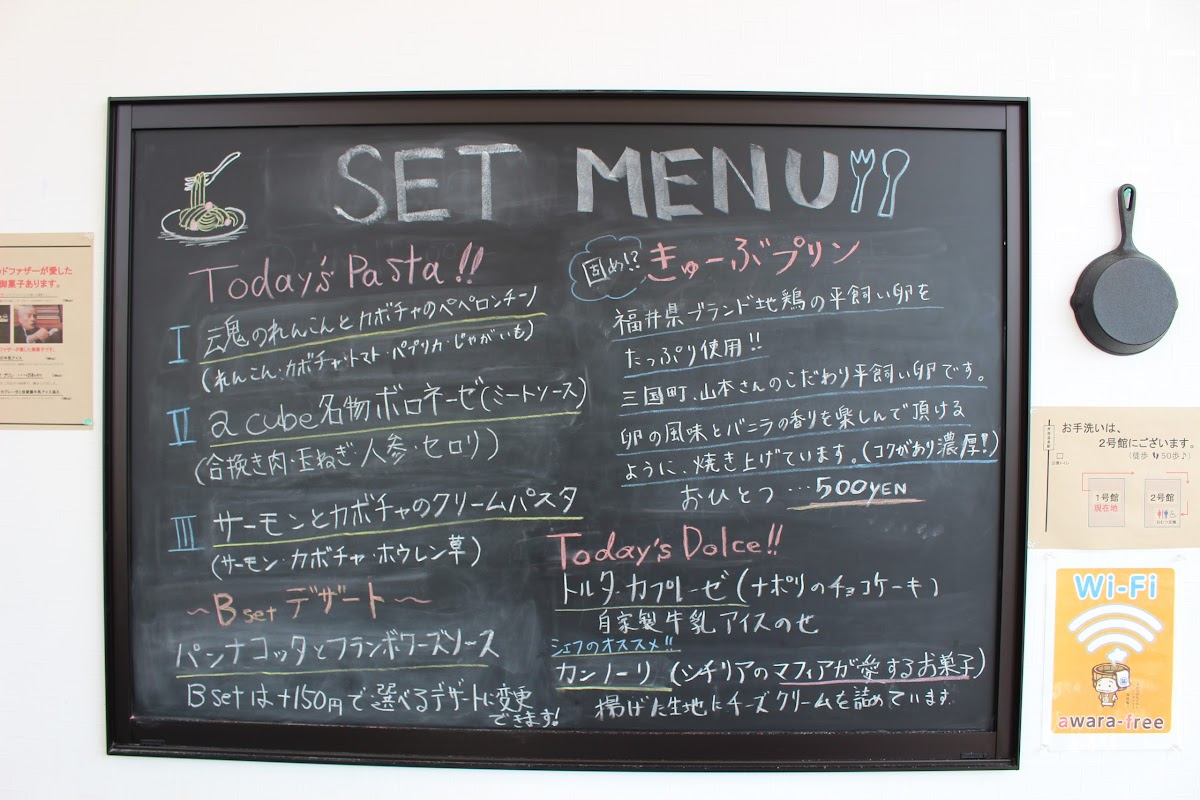 SET MENU
Today's Pasta!!
I 魂のれんこんとカボチャのペペロンチーノ
(れんこん・カボチャ・トマト・パプリカ・じゃがいも)
II a cube名物ボロネーゼ(ミートソース)
(合挽き肉・玉ねぎ 人参・セロリ)
III サーモンとカボチャのクリームパスタ
(サーモン・カボチャ・ホウレン草)
〜B set デザート〜
パンナコッタとフランボワーズソース
B setは+150円で選べるデザートに変更
できます!
固め!?
きゅーぶプリン
福井県ブランド地鶏の平飼い卵を
たっぷり使用!!
三国町、山本さんのこだわり平飼い卵です。
卵の風味とバニラの香りを楽しんで頂ける
ように、焼き上げています。(コクがあり濃厚!)
おひとつ…500YEN
Today's Dolce!!
トルタ・カプレーゼ(ナポリのチョコケーキ)
自家製牛乳アイスのせ
シェフのオススメ!!
カンノーリ(シチリアのマフィアが愛するお菓子)
揚げた生地にチーズクリームを詰めています.
ドファザーが愛した
御菓子あります。
お手洗いは、
2号館にございます。
(徒歩 50歩♪)
1号館
現在地
2号館
Wi-Fi
awara-free